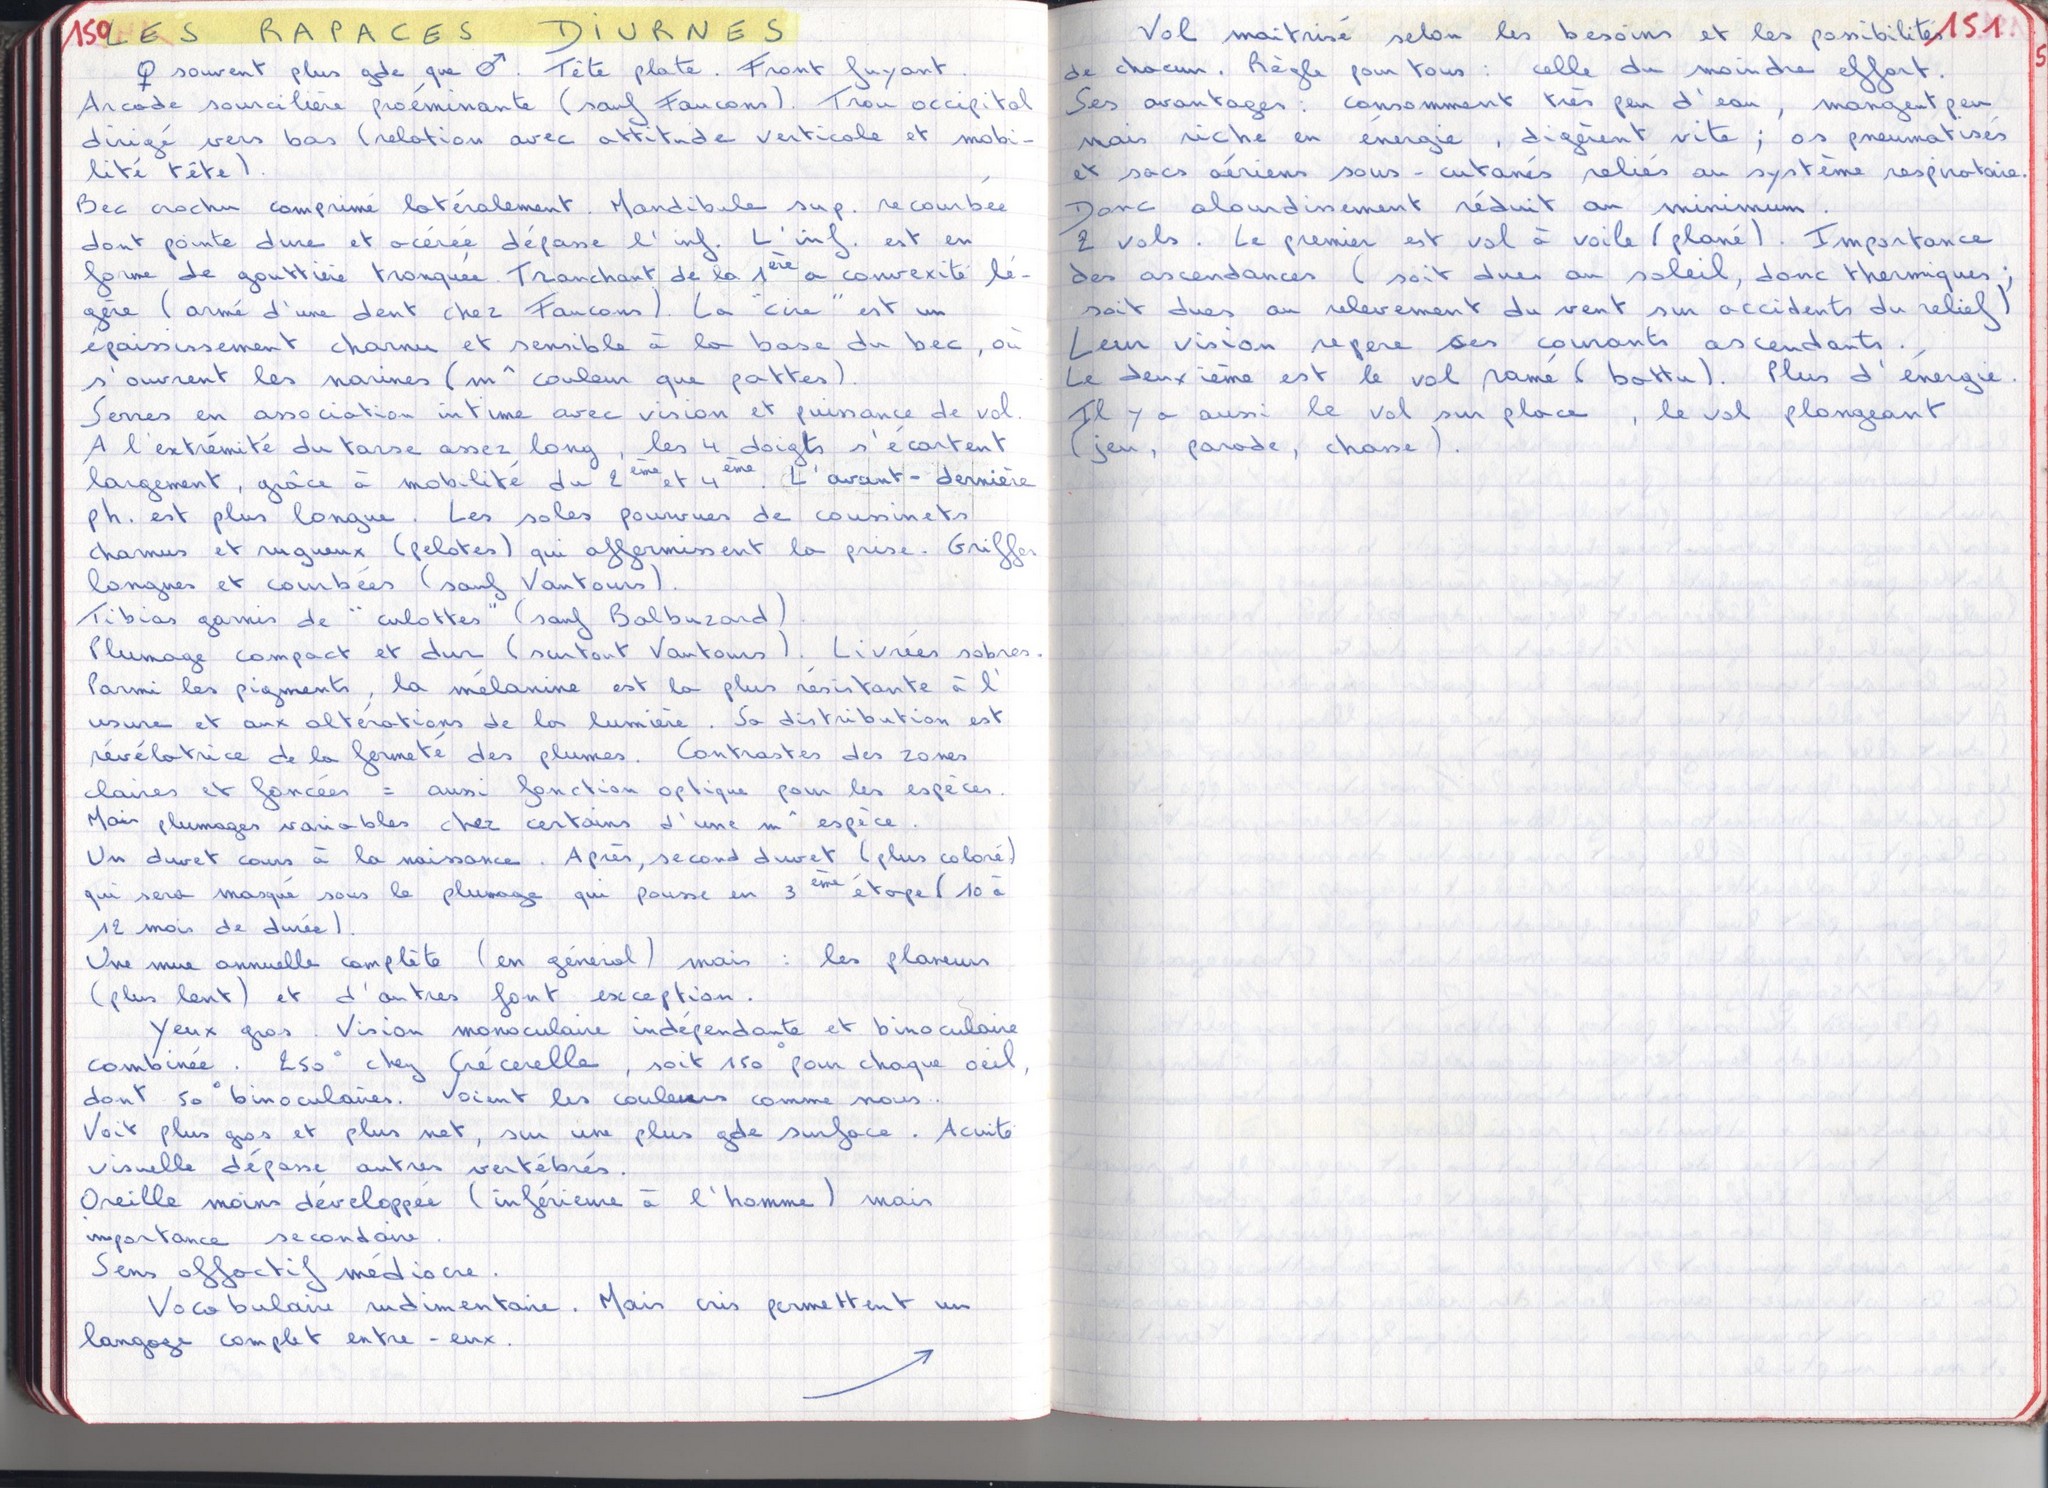 150
LES RAPACES DIURNES
♀ souvent plus gde que ♂. Tête plate. Front fuyant.
Arcade sourcilière proéminante (sauf Faucons). Trou occipital
dirigé vers bas (relation avec attitude verticale et mobi-
lité tête).
Bec crochu comprimé latéralement. Mandibule sup. recourbée
dont pointe dure et acérée dépasse l'inf. L'inf. est en
forme de gouttière tronquée. Tranchant de la 1ère a convexité lé-
gère (armé d'une dent chez Faucons). La "cire" est un
épaississement charnu et sensible à la base du bec, où
s'ouvrent les narines (m^ couleur que pattes).
Serres en association intime avec vision et puissance de vol.
A l'extrémité du tarse assez long, les 4 doigts s'écartent
largement, grâce à mobilité du 2ème et 4ème. L'avant-dernière
ph. est plus longue. Les soles pourvues de coussinets
charnus et rugueux (pelotes) qui affermissent la prise. Griffes
longues et courbées (sauf Vautours).
Tibias garnis de "culottes" (sauf Balbuzard).
Plumage compact et dur (surtout Vautours). Livrées sobres.
Parmi les pigments, la mélanine est la plus résistante à l'
usure et aux altérations de la lumière. Sa distribution est
révélatrice de la fermeté des plumes. Contrastes des zones
claires et foncées = aussi fonction optique pour les espèces.
Mais plumages variables chez certains d'une m^ espèce.
Un duvet cours à la naissance. Après, second duvet (plus coloré)
qui sera masqué sous le plumage qui pousse en 3ème étape (10 à
12 mois de durée).
Une mue annuelle complète (en général) mais : les planeurs
(plus lent) et d'autres font exception.
Yeux gros. Vision monoculaire indépendante et binoculaire
combinée. 250° chez Crécerelle, soit 150° pour chaque oeil,
dont 50° binoculaires. Voient les couleurs comme nous.
Voit plus gros et plus net, sur une plus gde surface. Acuité
visuelle dépasse autres vertébrés.
Oreille moins développée (inférieure à l'homme) mais
importance secondaire.
Sens olfactif médiocre.
Vocabulaire rudimentaire. Mais cris permettent un
langage complet entre-eux.
151.
Vol maitrisé selon les besoins et les possibilités
de chacun. Règle pour tous : celle du moindre effort.
Ses avantages : consomment très peu d'eau, mangent peu
mais riche en énergie, digèrent vite ; os pneumatisés
et sacs aériens sous-cutanés reliés au système respiratoire.
Donc alourdissement réduit au minimum.
2 vols. Le premier est vol à voile (plané). Importance
des ascendances (soit dues au soleil, donc thermiques ;
soit dues au relevement du vent sur accidents du relief)
Leur vision repere ses courants ascendants.
Le deuxième est le vol ramé (battu). Plus d'énergie.
Il y a aussi le vol sur place, le vol plongeant
(jeu, parade, chasse).
5